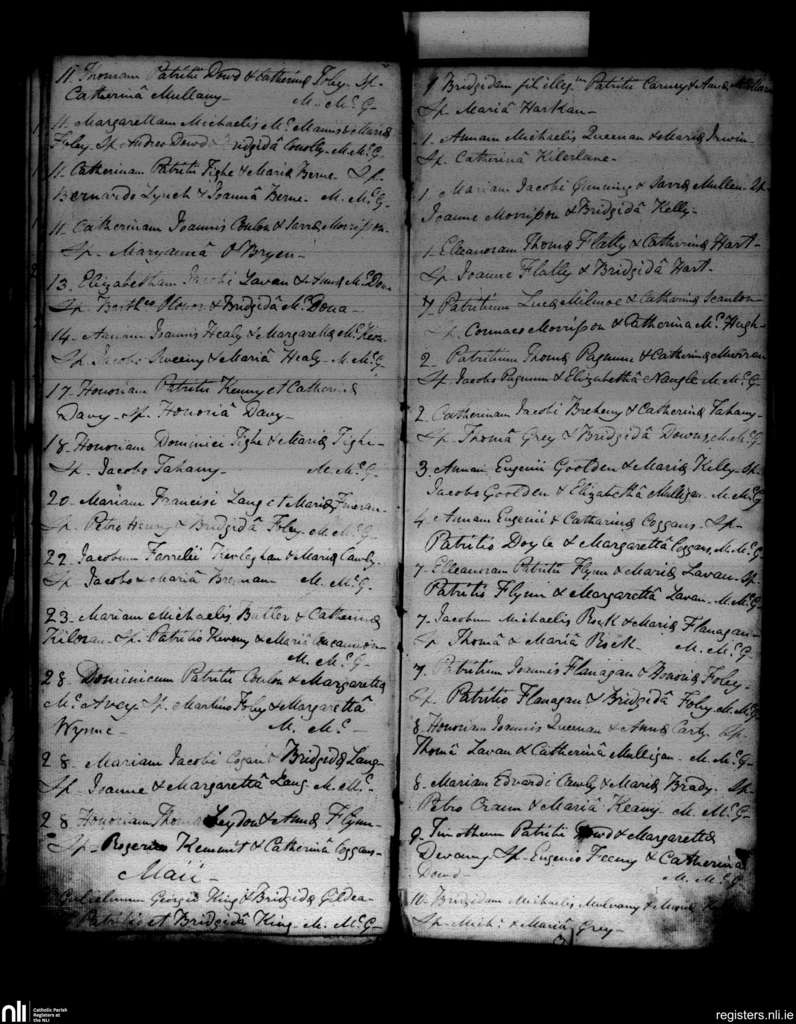 11. Thomam Patritii Dowd & Catherinæ Foley. Sp.
Catherinâ Mullany - M. McG
11. Margarettam Michaelis McManus & Mariæ
Foley. Sp. Andreo Dowd & Bridgidâ Conolly. M. McG.
11. Catherinam Patritii Tighe & Mariæ Berne. Sp.
Bernardo Lynch & Joannâ Berne. M. McG.
11. Catherinam Joannis Conlon & Sarræ Morrisson.
Sp. Maryannâ O'Bryen -
13. Elizabetham Jacobi Lavan & Annæ McDon
Sp. Bridgidâ McDona -
14. Annam Joannis Healy & Margarettæ
Sp. Jacobo Sweeny & Mariâ Healy. M. McG.
17. Honoriam Patritii Kenny et Catherinæ
Davy. Sp. Honoriâ Davy -
18. Honoriam Dominici Tighe & Mariæ Tighe -
Sp. Jacobo Tahany - M. McG
20. Mariam Francisi Lang et Mariæ
Sp. Petro Henry & Bridgidâ Foley. M. McG.
22. Jacobum Farrelii & Mariæ Cawly.
Sp. Jacobo & Mariâ Brennan M. McG.
23. Mariam Michaelis Butler & Catherinæ
Kiloran. Sp. Patritio & Mariâ
M. McG -
28. Dominicum Patritii Conlon & Margarettæ
McAvey. Sp. Martino Foley & Margarettâ
Wynne - M. Mc -
28. Mariam Jacobi Cogan & Bridgidæ Lang -
Sp. Joanne & Margarettâ Lang M. Mc -
28 Honoriam Thomæ Leydon & Annæ Flynn -
Sp. Rogerio & Catherinâ Coggans -
Maii -
Gulielmum Georgii King & Bridgidæ Gildea -
Patritio et Bridgidâ King. M. McG -
1 Bridgidam fil illeg Patritii Carney & Annæ
Sp. Mariâ Harkan -
1. Annam Michaelis Queenan & Mariæ Irwin -
Sp. Catherinâ Kilerlane -
1 Mariam Jacobi Gunning & Sarræ Mullen. Sp.
Joanne Morrisson & Bridgidâ Kelly -
1. Elleanoram Thomæ Flatly & Catherinæ Hart -
Sp Joanne Flatly & Bridgidâ Hart -
7 Patritium Lucæ & Catherinæ Scanlon -
Sp. Cormaco Morrisson & Catherina McHugh -
2. Patritium Thomæ & Catherinæ
Sp. Jacobo & Elizabethâ Nangle M. McG -
2 Catherinam Jacobi Breheny & Catherinæ Tahany -
Sp. Thomâ Grey & Bridgidâ Downs. M. McG -
3. Annam Eugenii Goolden & Mariæ Kelly - Sp.
Jacobo Goolden & Elizabethâ Mulligan. M. McG
4. Annam Eugenii & Catharinæ Coggans. Sp -
Patritio Doyle & Margarettâ Coggans. M. McG
7. Elleanoram Patritii Flynn & Mariæ Lavan. Sp -
Patritio Flynn & Margarettâ Lavan. M. McG.
7. Jacobum Michaelis & Mariæ Flanagan -
Sp Thomâ & Mariâ M. McG
7. Patritium Joannis Flanagan & Honoriæ Foley -
Sp. Patritio Flanagan & Bridgidâ Foley. M. McG
8. Honoriam Joannis Queenan & Annæ Carty. Sp.
Thomâ Lavan & Catherinâ Mulligan. M. McG
8. Mariam Edvardi Cawly & Mariæ Brady. Sp
Petro & Mariâ Keany. M. McG -
9. Timotheum Patritii Dowd & Margarettæ
Devanny Sp. Eugenio Feeny & Catherinâ
Dowd - M. McG
10. Bridgidam Michaelis Mulvany & Mariæ
Sp. Mich: & Mariâ Grey -
nli
Catholic Parish
Registers at
the NLI
registers.nli.ie